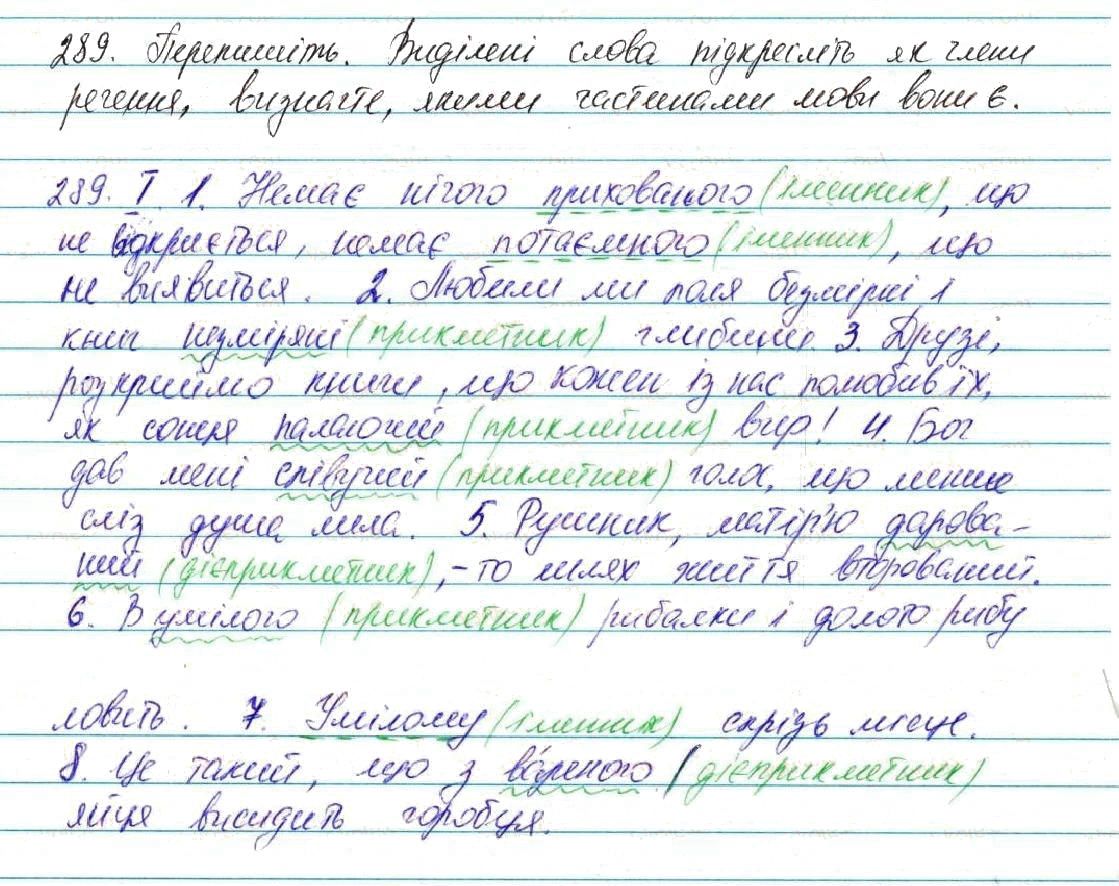 289. Перепишіть. Виділені слова підкресліть як члени
речення, визначте, якими частинами мови вони є.
289. I 1. Немає нічого прихованого (іменник), що
не відкриється, немає потаємного (іменник), що
не виявиться. 2. Любили ми поля безмірні і
книг незміряні (прикметник) глибини. 3. Друзі,
розкриймо книги, що кожен із нас полюбив їх,
як сонця палаючий (прикметник) вир! 4. Бог
дав мені співучий (прикметник) голос, що менше
сліз душа лила. 5. Рушник, матір'ю дарова-
ний (дієприкметник), – то шлях життя вторований.
6. В умілого (прикметник) рибалки і долото рибу
ловить. 7. Умілому (іменник) скрізь місце.
8. Це такий, що з вáреного (дієприкметник)
яйця висидить горобця.